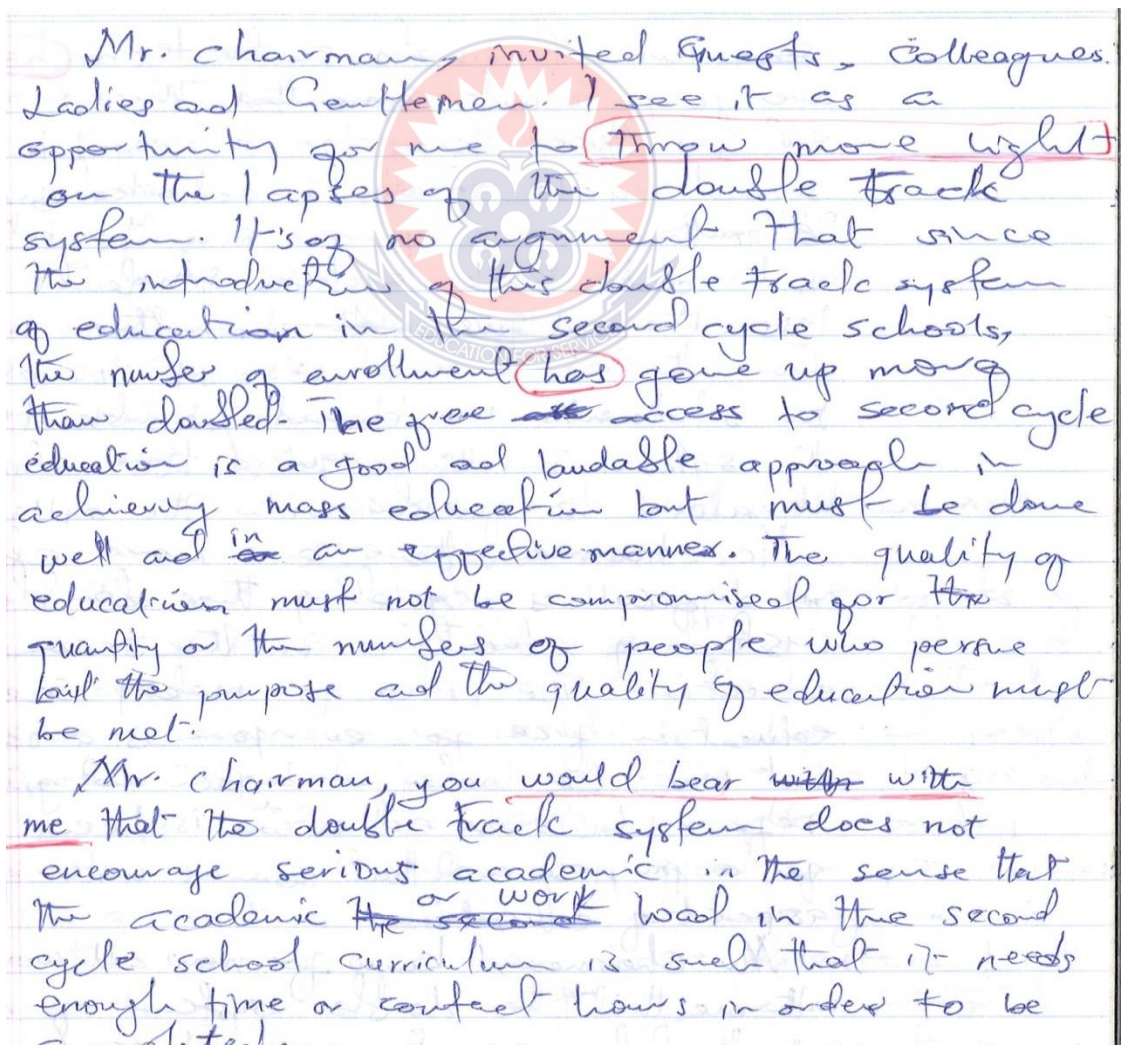 Mr. Chairman, invited Guests, Colleagues.
Ladies and Gentlemen. I see it as a
opportunity for me to throw more light
on the lapses of the double track
system. It's of no argument that since
the introduction of this double track system
of education in the second cycle schools,
the number of enrollment has gone up more
than doubled. The free access to second cycle
education is a good and laudable approach in
achieving mass education but must be done
well and in an effective manner. The quality of
education must not be compromised for the
quantity or the numbers of people who persue
but the purpose and the quality of education must
be met.
Mr. Chairman, you would bear with with
me that the double track system does not
encourage serious academic in the sense that
the academic or work load in the second
cycle school curriculum is such that it needs
enough time or contact hours in order to be
EDUCATION FOR SERVICE